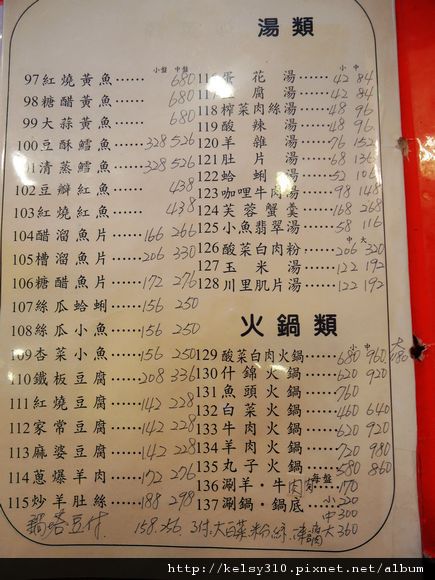 湯類
小盤 中盤
97 紅燒黃魚…… 680
98 糖醋黃魚…… 680
99 大蒜黃魚…… 680
100 豆酥鱈魚…… 328 526
101 清蒸鱈魚…… 328 526
102 豆瓣紅魚…… 438
103 紅燒紅魚…… 438
104 醋溜魚片…… 166 266
105 槽溜魚片…… 206 330
106 糖醋魚片…… 172 276
107 絲瓜蛤蜊…… 156 250
108 絲瓜小魚…… 156 250
109 杏菜小魚…… 156 250
110 鐵板豆腐…… 208 336
111 紅燒豆腐…… 142 228
112 家常豆腐…… 142 228
113 麻婆豆腐…… 142 228
114 蔥爆羊肉…… 172 276
115 炒羊肚絲…… 188 298
小 中
蛋花湯…… 42 84
腐湯…… 42 84
118 榨菜肉絲湯…… 48 96
119 酸辣湯…… 48 96
120 羊雜湯…… 76 152
121 肚片湯…… 68 136
122 蛤蜊湯…… 52 106
123 咖哩牛肉湯…… 98 148
124 芙蓉蟹羹…… 168 268
125 小魚翡翠湯…… 58 116
中 大
126 酸菜白肉粉…… 206 320
127 玉米湯…… 122 192
128 川里肌片湯…… 122 192
火鍋類
小 中 大
129 酸菜白肉火鍋…… 680 960
130 什錦火鍋…… 620 920
131 魚頭火鍋…… 760
132 白菜火鍋…… 460 640
133 牛肉火鍋…… 620 920
134 羊肉火鍋…… 720 980
135 丸子火鍋…… 580 860
每盤
136 涮羊·牛肉 170
137 涮鍋·鍋底 小 220
中 300
大 360
158. 256
http://kelsy310.pixnet.net/album